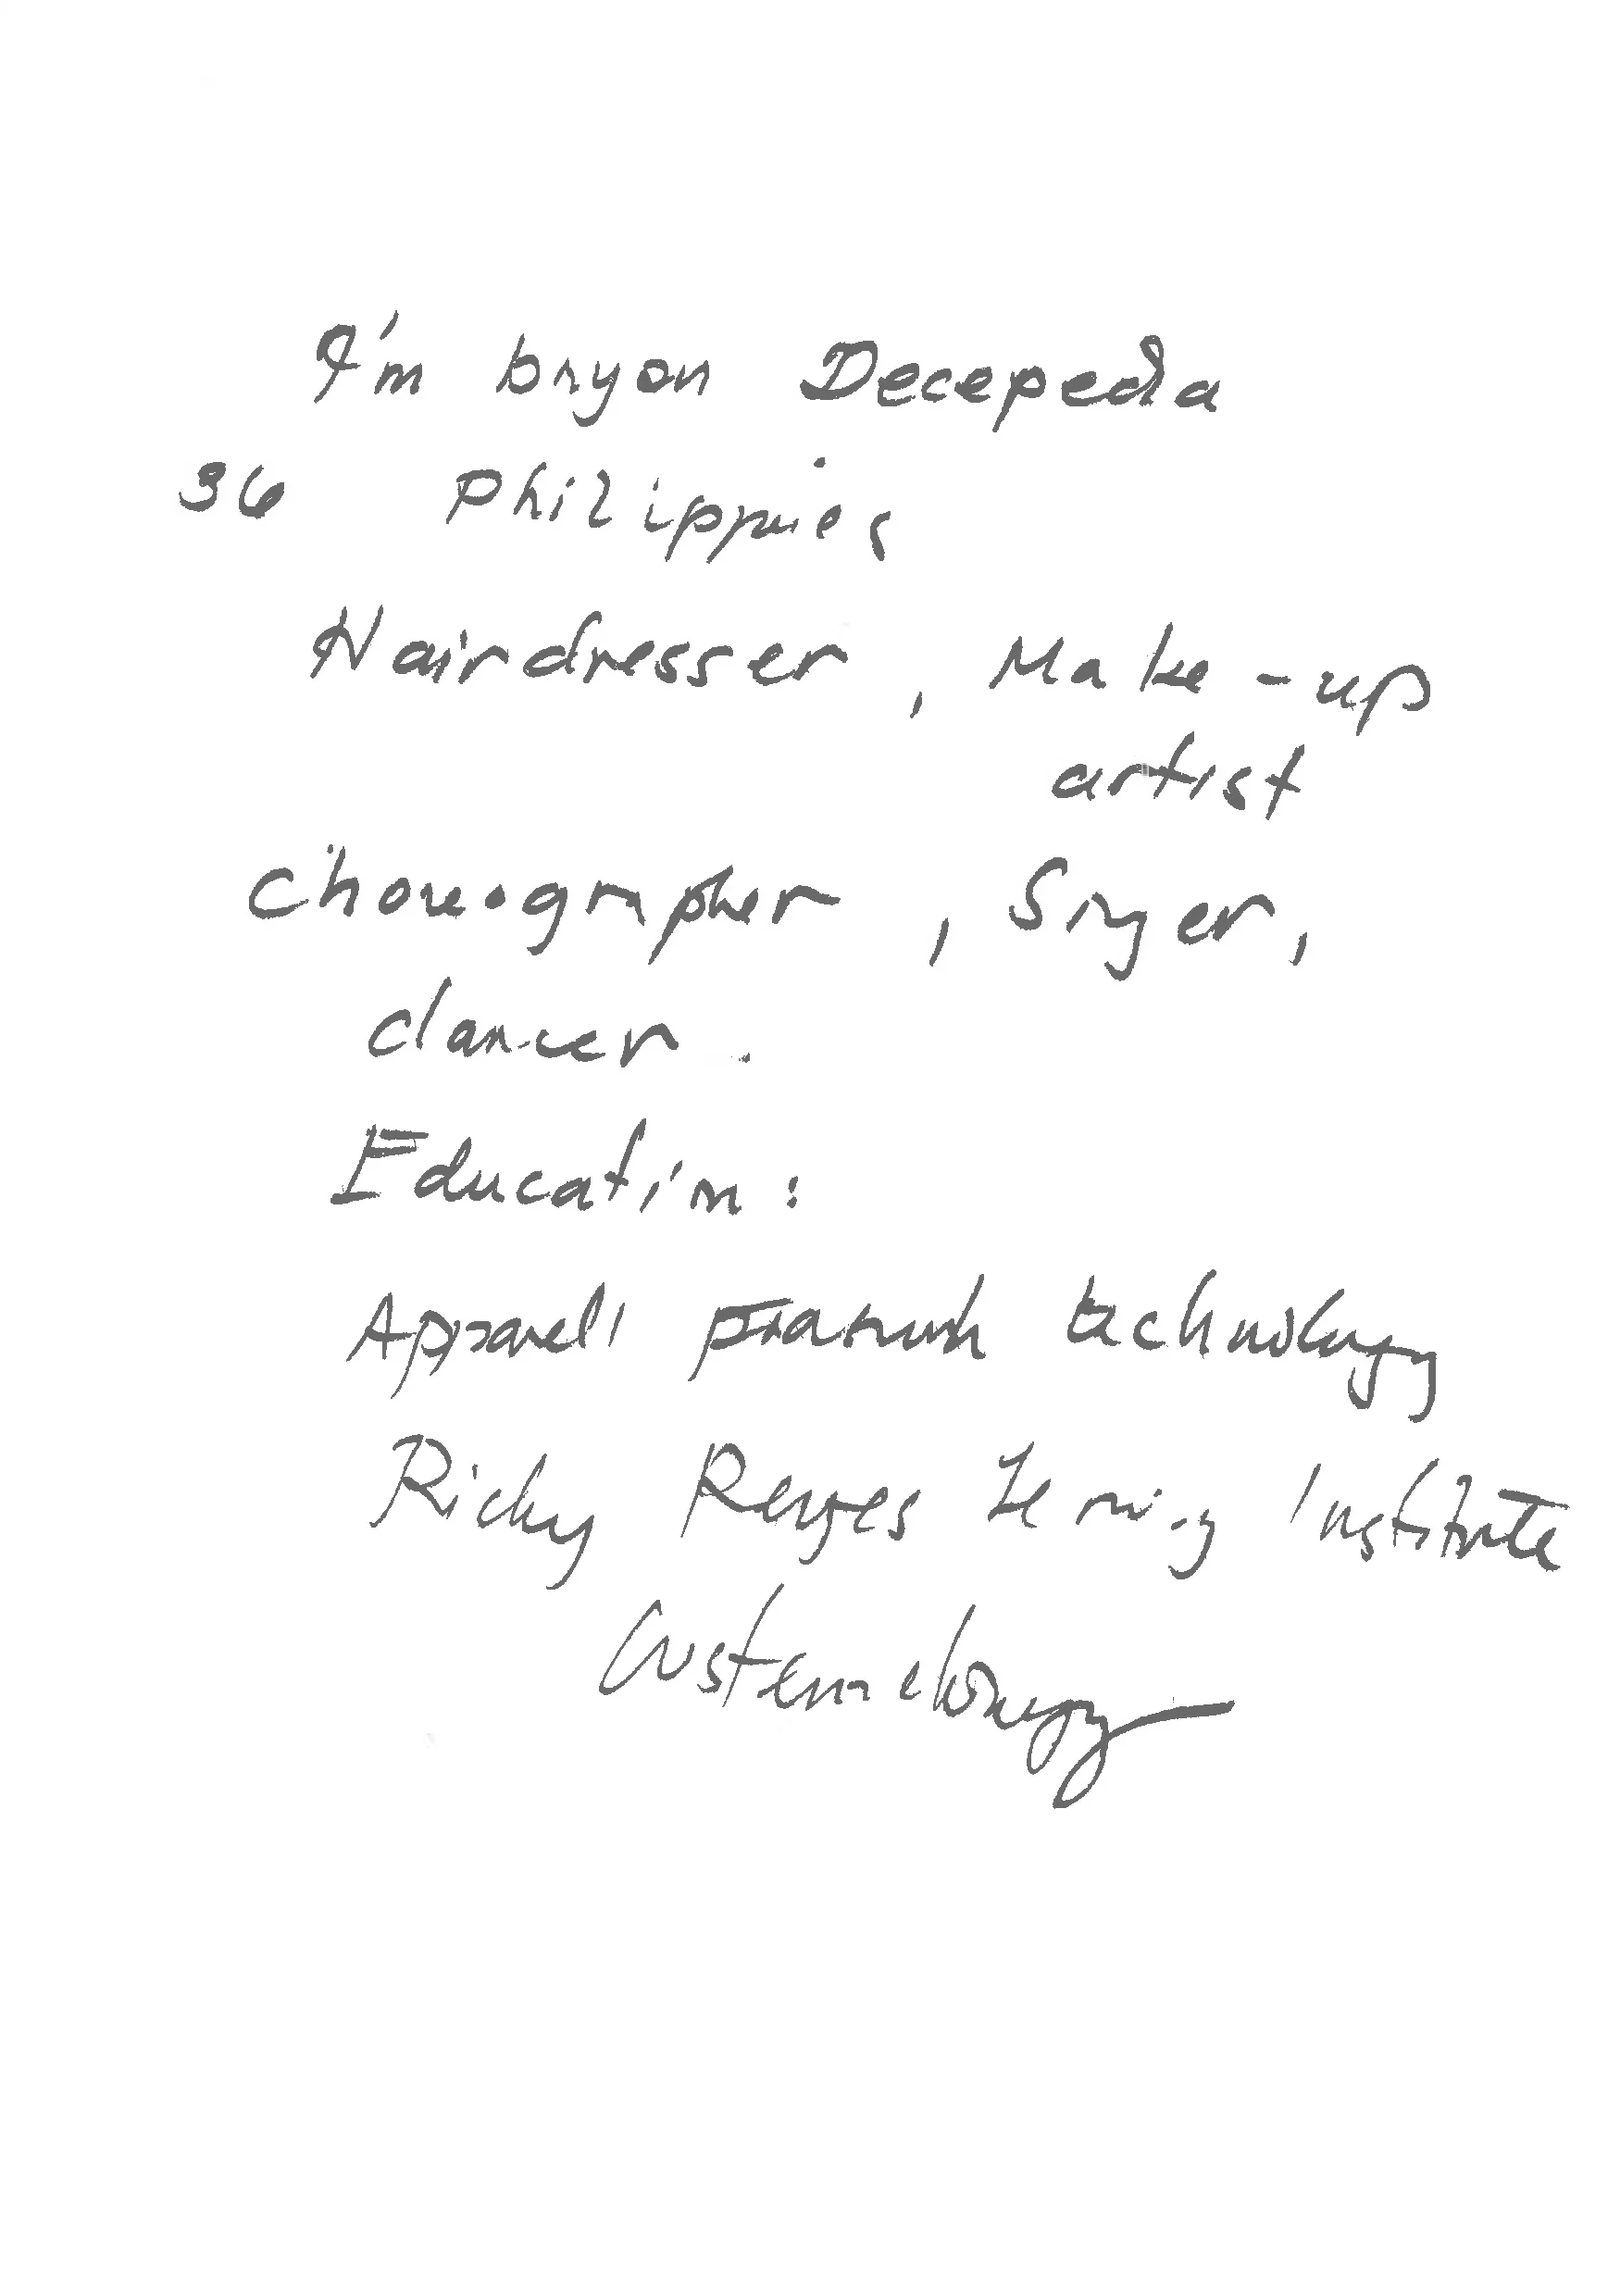 I'm bryan Decepeda
36 Philippines
Hairdresser, Make-up
artist
Choreographer, Singer,
dancer.
Education:
Apparel technology
Ricky Reyes Institute